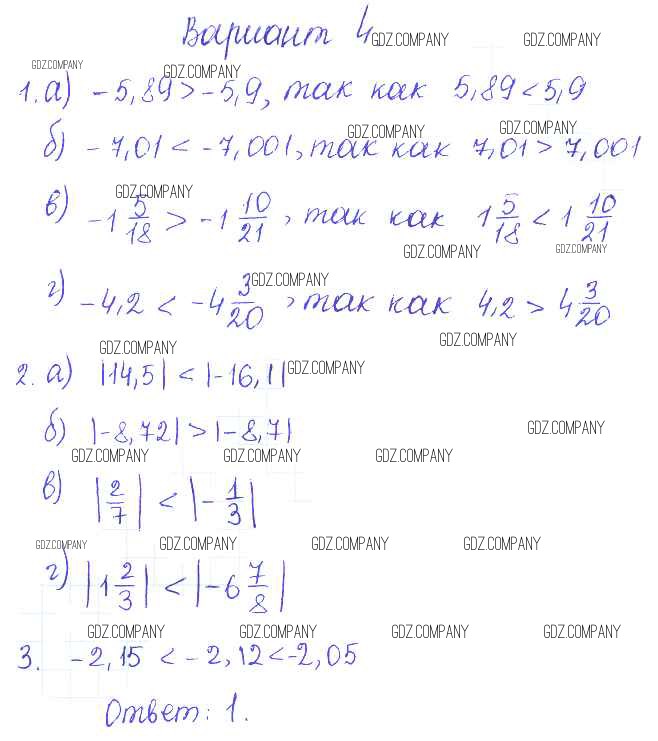 Вариант 4
GDZ.COMPANY GDZ.COMPANY
GDZ.COMPANY GDZ.COMPANY
1. а) -5,89 > -5,9, так как 5,89 < 5,9
GDZ.COMPANY GDZ.COMPANY
б) -7,01 < -7,001, так как 7,01 > 7,001
GDZ.COMPANY
в) -1 5/18 > -1 10/21, так как 1 5/18 < 1 10/21
GDZ.COMPANY GDZ.COMPANY
GDZ.COMPANY
г) -4,2 < -4 3/20, так как 4,2 > 4 3/20
GDZ.COMPANY GDZ.COMPANY
2. а) |14,5| < |-16,1| GDZ.COMPANY
б) |-8,72| > |-8,7| GDZ.COMPANY
GDZ.COMPANY GDZ.COMPANY GDZ.COMPANY
в) |2/7| < |-1/3|
GDZ.COMPANY GDZ.COMPANY GDZ.COMPANY GDZ.COMPANY
г) |1 2/3| < |-6 7/8|
GDZ.COMPANY GDZ.COMPANY GDZ.COMPANY GDZ.COMPANY
3. -2,15 < -2,12 < -2,05
Ответ: 1.